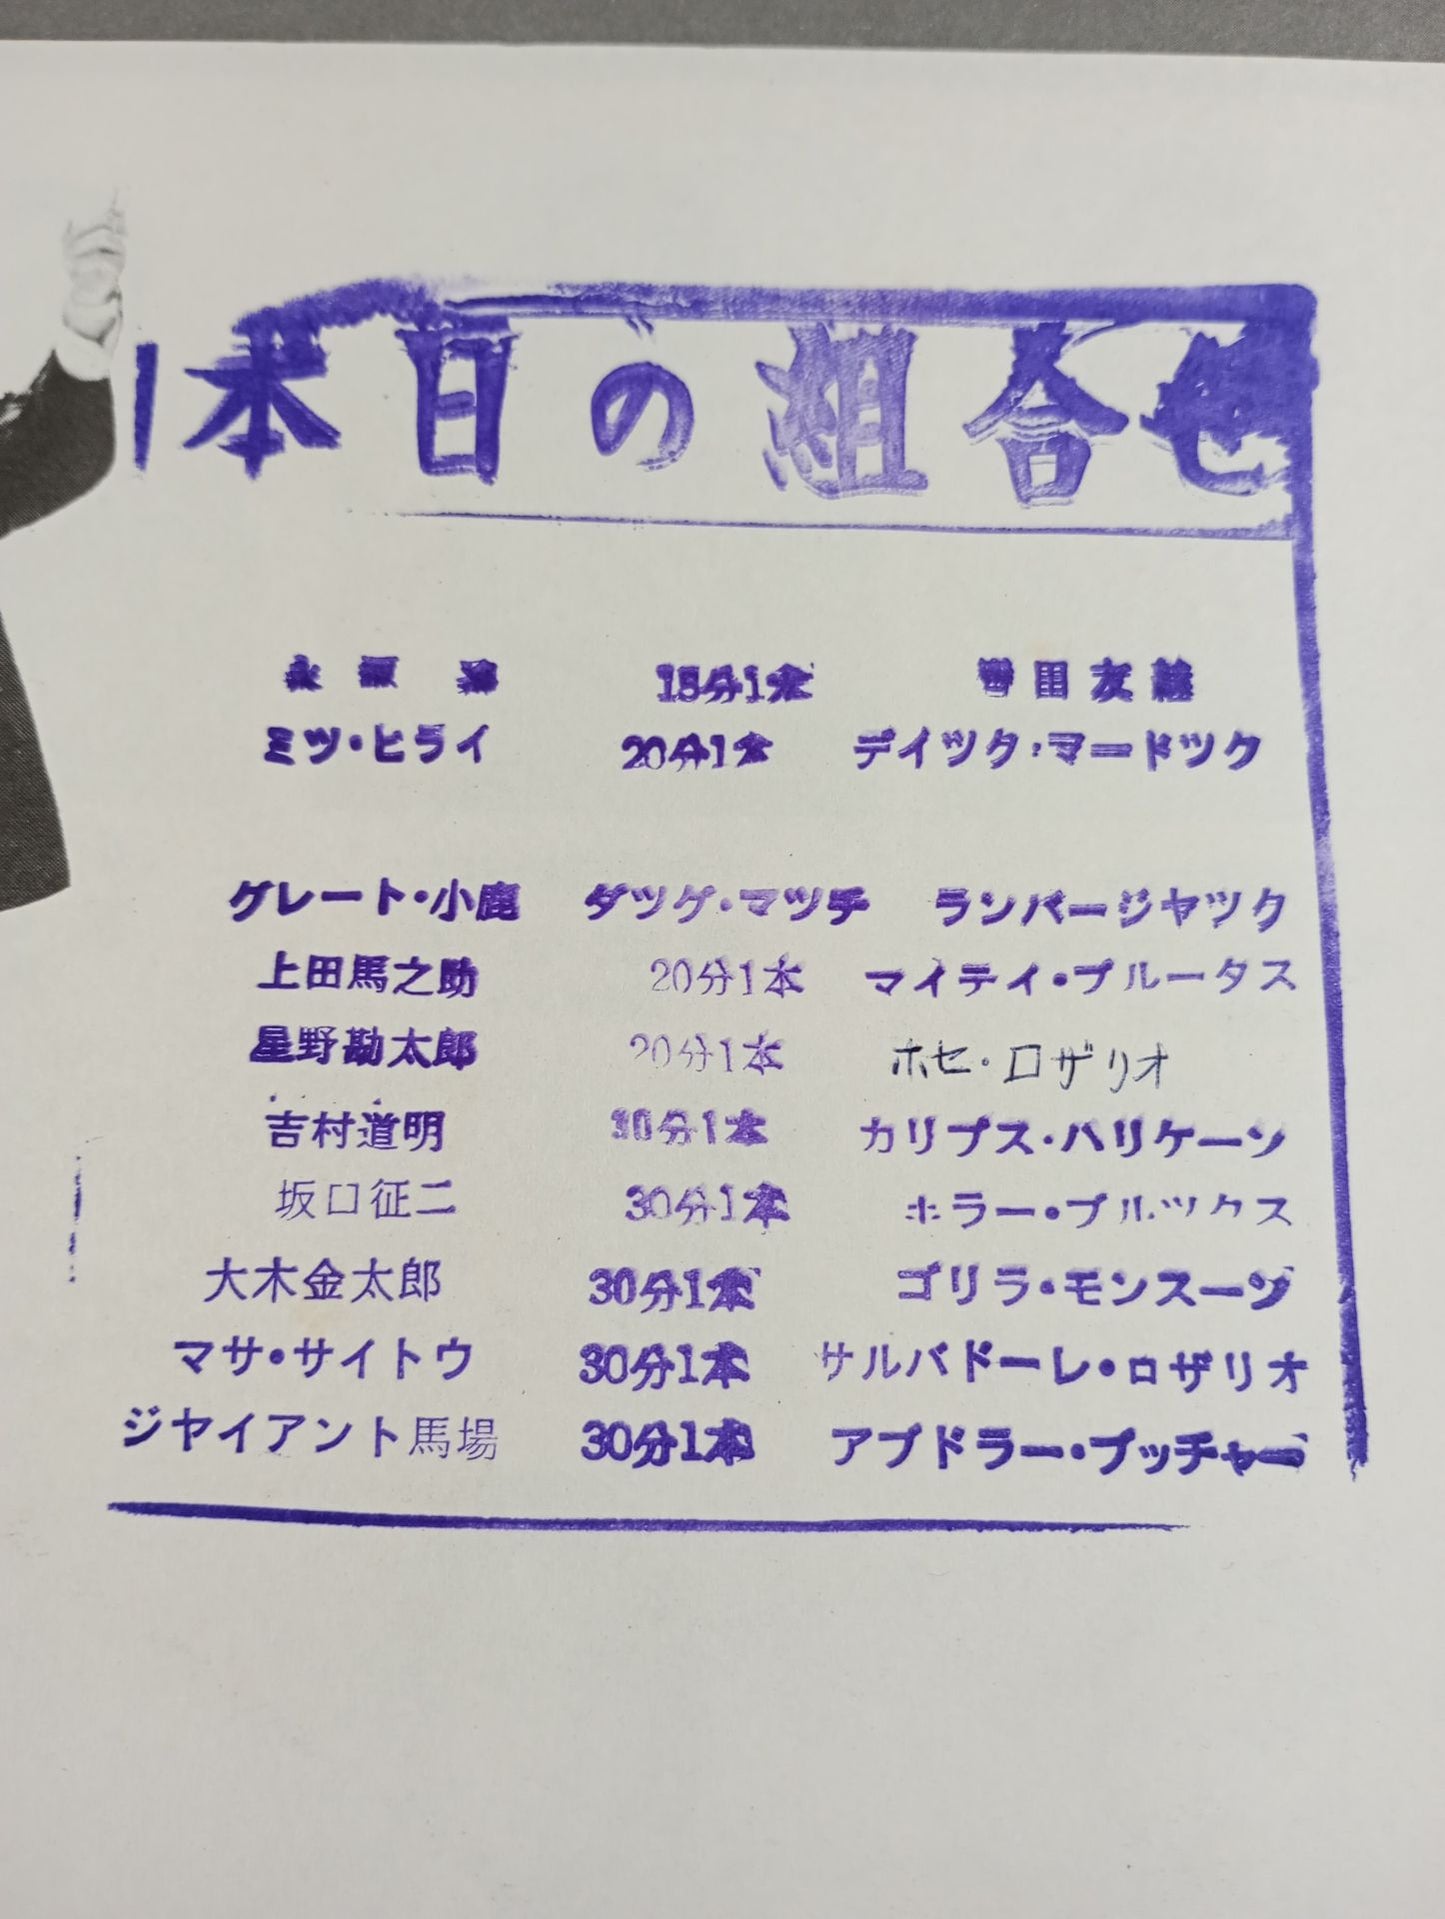 本日の組合せ
永源遙 15分1本 誉田友継
ミツ・ヒライ 20分1本 デイツク・マードツク
グレート・小鹿 ダツグ・マツチ ランバージヤツク
上田馬之助 20分1本 マイテイ・ブルータス
星野勘太郎 20分1本 ホセ・ロザリオ
吉村道明 30分1本 カリプス・ハリケーン
坂口征二 30分1本 ホラー・ブルツクス
大木金太郎 30分1本 ゴリラ・モンスーン
マサ・サイトウ 30分1本 サルバドーレ・ロザリオ
ジヤイアント馬場 30分1本 アブドラー・ブッチャー